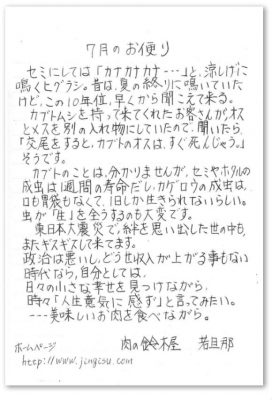 7月のお便り
セミにしては「カナカナカナ---」と、涼しげに
鳴くヒグラシ。昔は、夏の終りに鳴いていた
けど、この10年位、早くから聞こえて来る。
カブトムシを持って来てくれたお客さんが、オス
とメスを別の入れ物にしていたので、聞いたら、
「交尾をすると、カブトのオスは、すぐ死んじゃう。」
そうです。
カブトのことは、分かりませんが、セミやホタルの
成虫は1週間の寿命だし、カゲロウの成虫は、
口も胃袋もなくて、1日しか生きられないらしい。
虫が「生」を全うするのも大変です。
東日本大震災で、絆を思い出した世の中も、
またギスギスして来てます。
政治は悪いし、どうせ収入が上がる事もない
時代なら、自分としては、
日々の小さな幸せを見つけながら、
時々「人生意気に感ず」と言ってみたい。
---美味しいお肉を食べながら。
ホームページ 肉の鈴木屋 若旦那
http://www.jingisu.com/